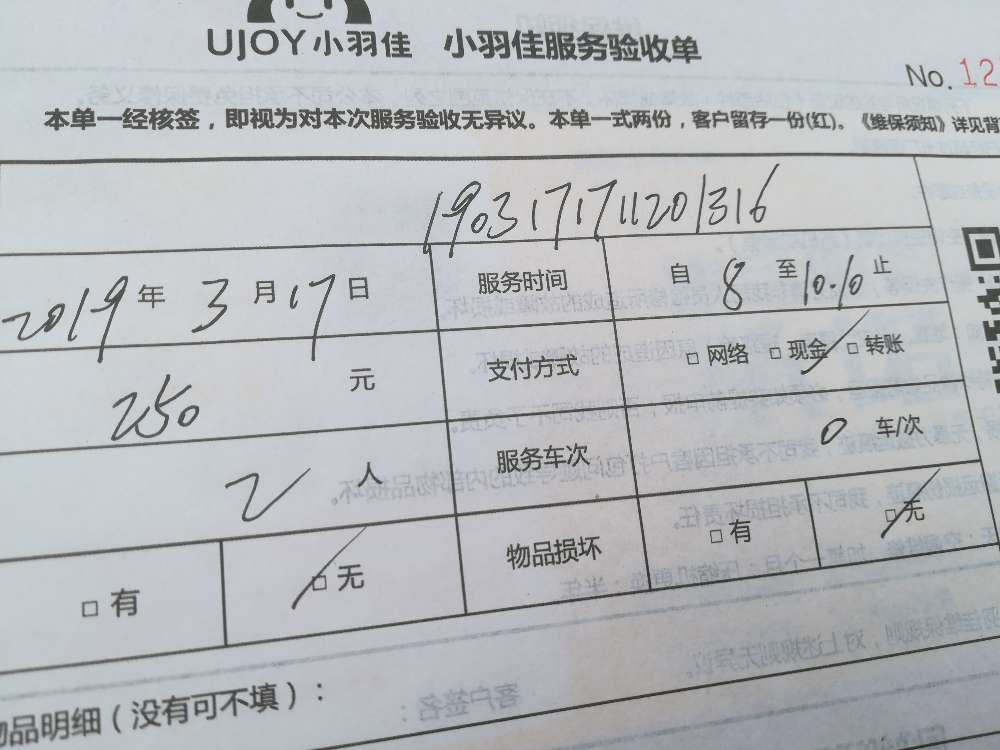 UJOY小羽佳 小羽佳服务验收单
No. 12
本单一经核签，即视为对本次服务验收无异议。本单一式两份，客户留存一份(红)。《维保须知》详见背
1903171711201316
2019年 3月17日 服务时间 自 8 至 10.10 止
250 元 支付方式 □ 网络 □ 现金 □ 转账
2 人 服务车次 0 车/次
□ 有 □ 无 物品损坏 □ 有 □ 无
物品明细（没有可不填）：